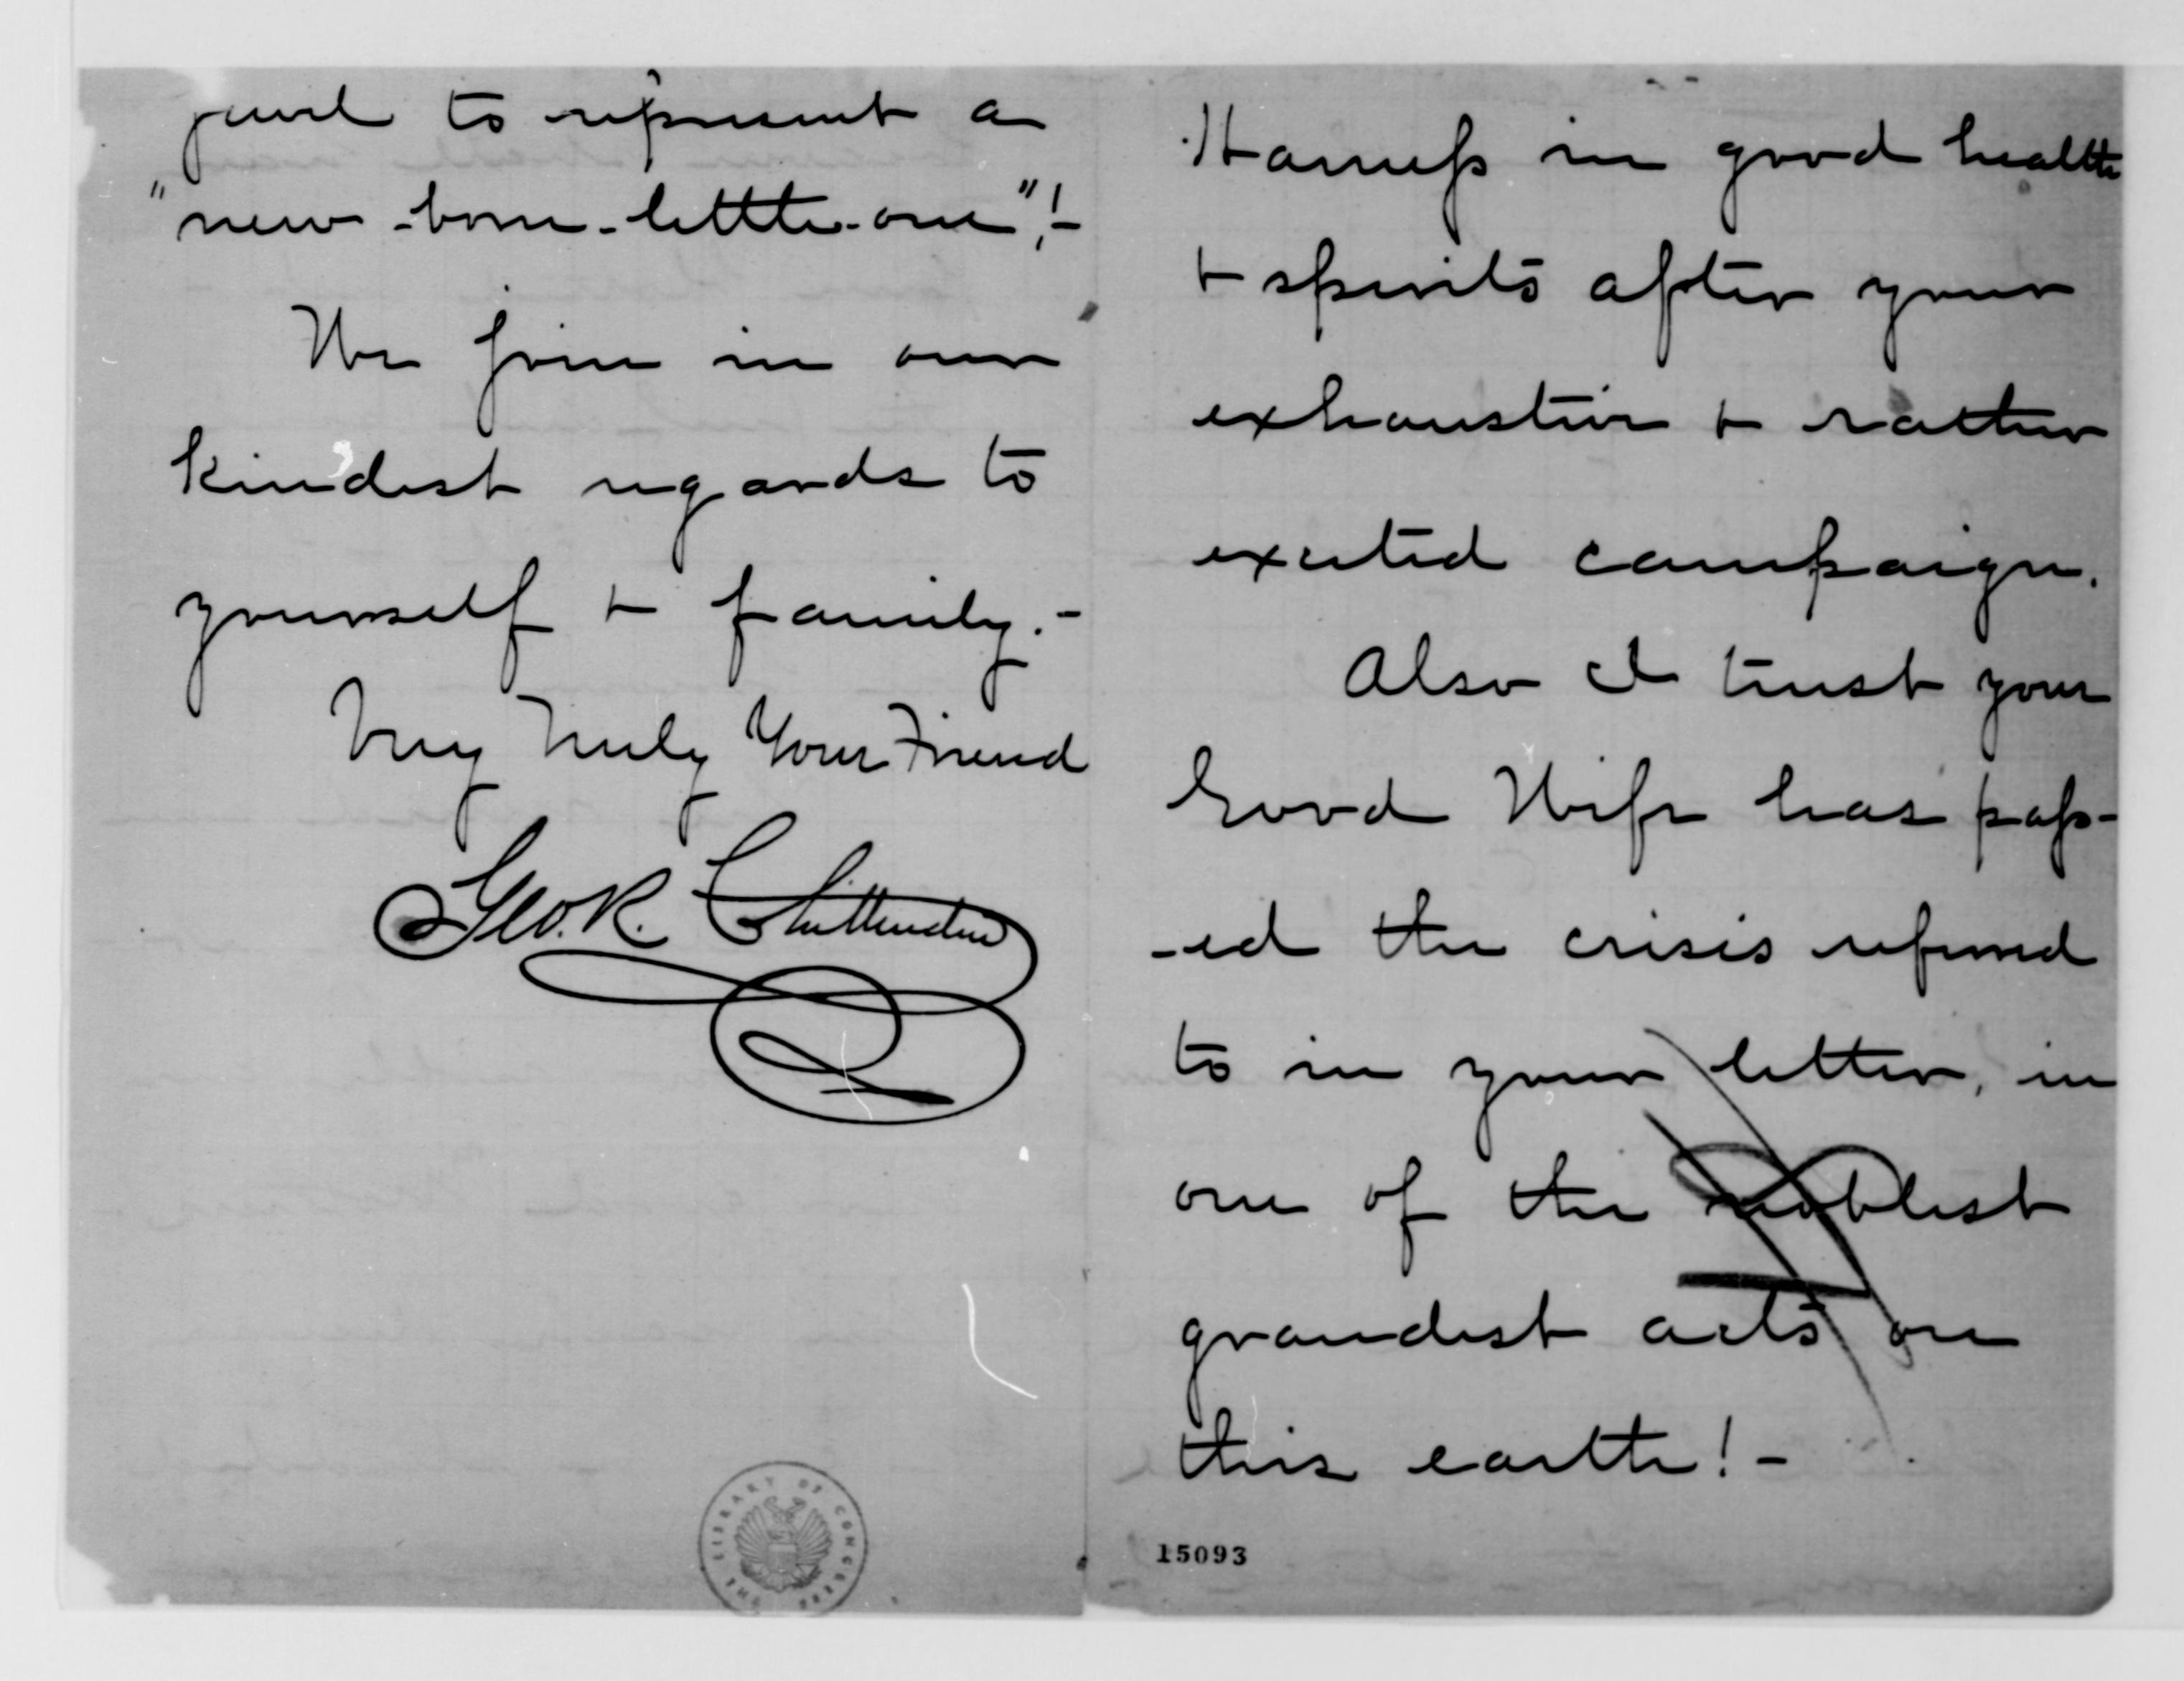 pearl to represent a
"new-born-little-one",!-
We join in our
kindest regards to
yourself + family.-
Very Truly Your Friend
Geo. R. Chittenden
THE LIBRARY OF CONGRESS
Harness in good health
+ spirits after your
exhaustive + rather
excited campaign.
Also I trust your
Good Wife has pass-
-ed the crisis referred
to in your letter, in
one of the noblest
grandest acts on
this earth!-
15093